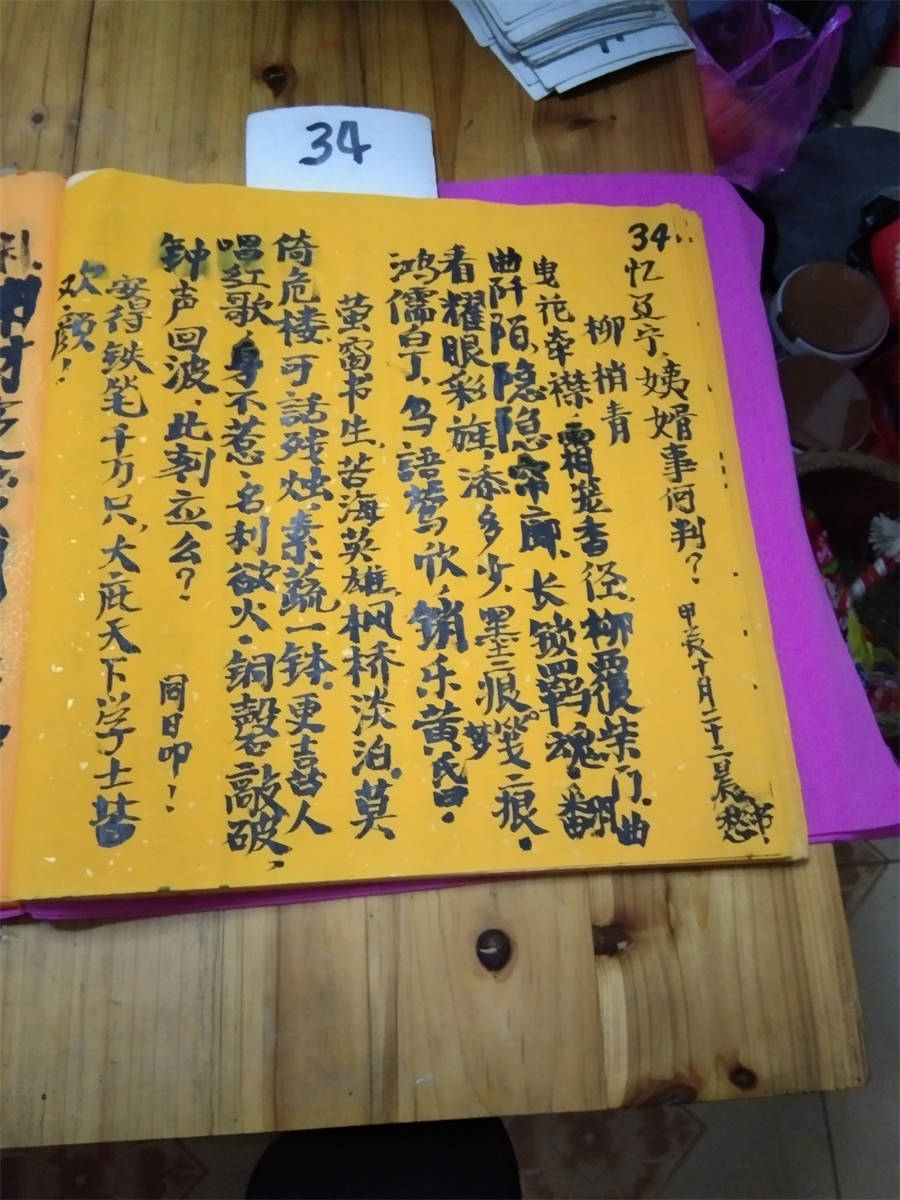 34
34 忆辽宁,姨婿事何判? 甲辰十月二十二日晨
柳梢青
曳花牵襟,霜篱香径,柳覆柴门.曲
曲阡陌,隐隐帘廊,长锁羁魂.翻
看耀眼彩旗,添多少墨痕梦痕.
鸿儒白丁、鸟語莺欣,销乐黄
萤窗书生,苦海英雄,枫桥淡泊.莫
倚危楼,可話残烛,素蔬一钵.更喜人
唱红歌,身不惹、名利欲火.铜磬敲破,
钟声回波,此刻应么? 同日叩!
安得铁笔千万只,大庇天下学子士皆
欢颜!